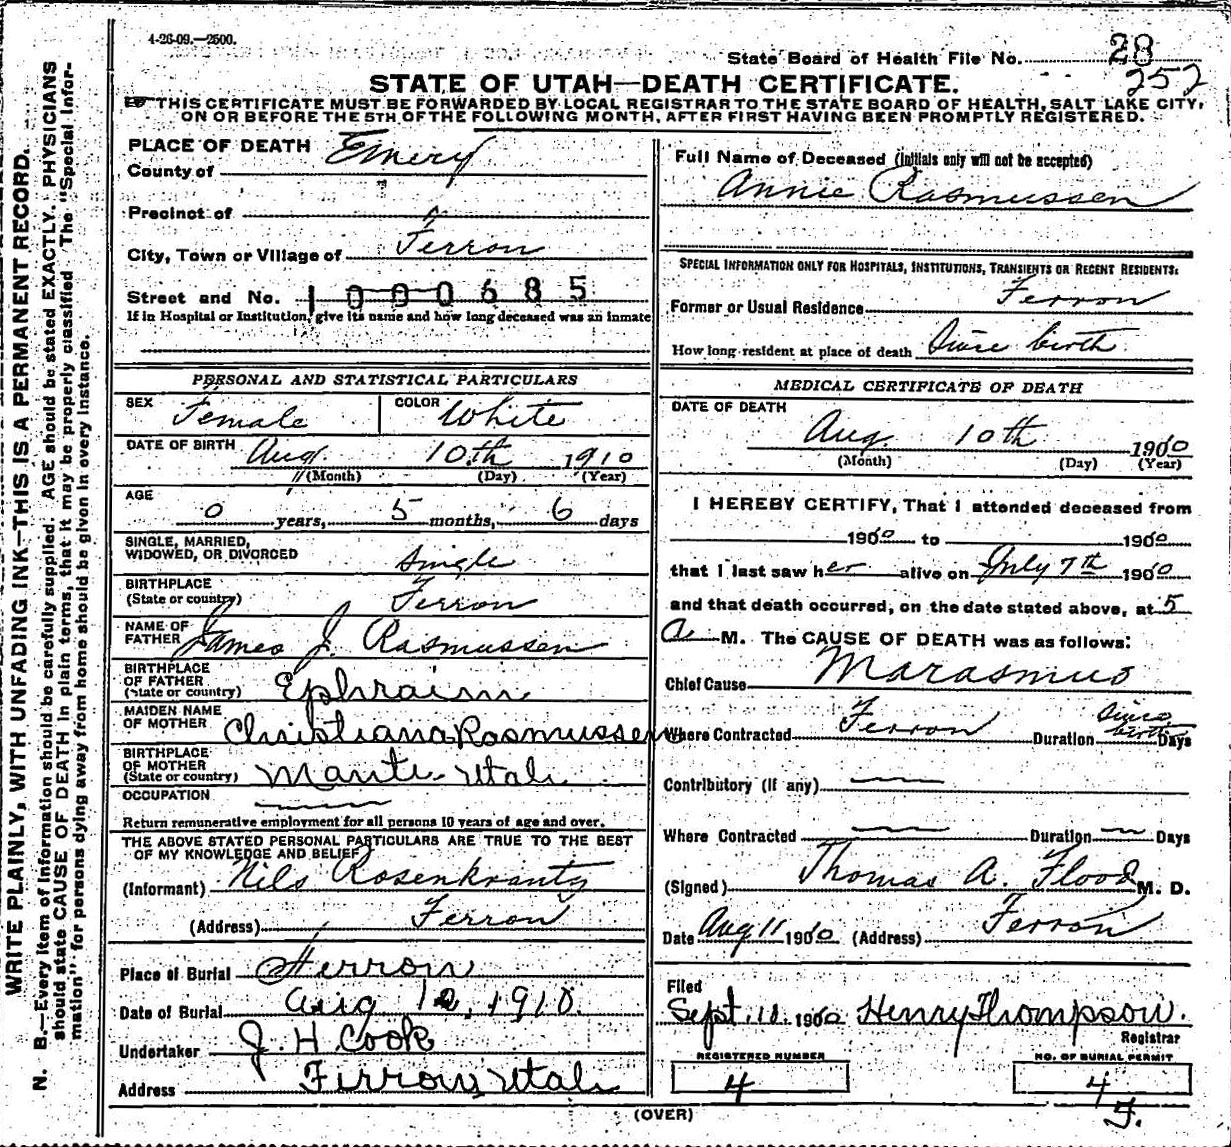 4-26-09.—2500.
State Board of Health File No. 28
252
STATE OF UTAH—DEATH CERTIFICATE.
THIS CERTIFICATE MUST BE FORWARDED BY LOCAL REGISTRAR TO THE STATE BOARD OF HEALTH, SALT LAKE CITY,
ON OR BEFORE THE 5TH OF THE FOLLOWING MONTH, AFTER FIRST HAVING BEEN PROMPTLY REGISTERED.
WRITE PLAINLY, WITH UNFADING INK—THIS IS A PERMANENT RECORD.
N. B.—Every item of information should be carefully supplied. AGE should be stated EXACTLY. PHYSICIANS
should state CAUSE OF DEATH in plain terms, that it may be properly classified. The "Special Infor-
mation" for persons dying away from home should be given in every instance.
PLACE OF DEATH
County of Emery
Precinct of
City, Town or Village of Ferron
Street and No. 1000685
If in Hospital or Institution, give its name and how long deceased was an inmate
PERSONAL AND STATISTICAL PARTICULARS
SEX Female COLOR White
DATE OF BIRTH Aug. 10th 1910
(Month) (Day) (Year)
AGE
0 years, 5 months, 6 days
SINGLE, MARRIED,
WIDOWED, OR DIVORCED Single
BIRTHPLACE
(State or country) Ferron
NAME OF
FATHER James J. Rasmussen
BIRTHPLACE
OF FATHER
(State or country) Ephraim
MAIDEN NAME
OF MOTHER Christiana Rasmussen
BIRTHPLACE
OF MOTHER
(State or country) Manti Utah
OCCUPATION
Return remunerative employment for all persons 10 years of age and over.
THE ABOVE STATED PERSONAL PARTICULARS ARE TRUE TO THE BEST
OF MY KNOWLEDGE AND BELIEF
(Informant) Nils Rosenkrantz
(Address) Ferron
Place of Burial Ferron
Date of Burial Aug 12, 1910.
Undertaker J. H Cook
Address Ferron, Utah
Full Name of Deceased (initials only will not be accepted)
Annie Rasmussen
SPECIAL INFORMATION ONLY FOR HOSPITALS, INSTITUTIONS, TRANSIENTS OR RECENT RESIDENTS:
Former or Usual Residence Ferron
How long resident at place of death Since birth
MEDICAL CERTIFICATE OF DEATH
DATE OF DEATH
Aug. 10th 1910
(Month) (Day) (Year)
I HEREBY CERTIFY, That I attended deceased from
1910 to 1910
that I last saw her alive on July 7th 1910
and that death occurred, on the date stated above, at 5
A M. The CAUSE OF DEATH was as follows:
Chief Cause Marasmus
Where Contracted Ferron Duration Since birth Days
Contributory (if any)
Where Contracted Duration Days
(Signed) Thomas A. Flood M. D.
Date Aug 11 1910 (Address) Ferron
Filed
Sept. 11. 1910 Henry Thompson.
Registrar
REGISTERED NUMBER
4
NO. OF BURIAL PERMIT
4
J.
(OVER)